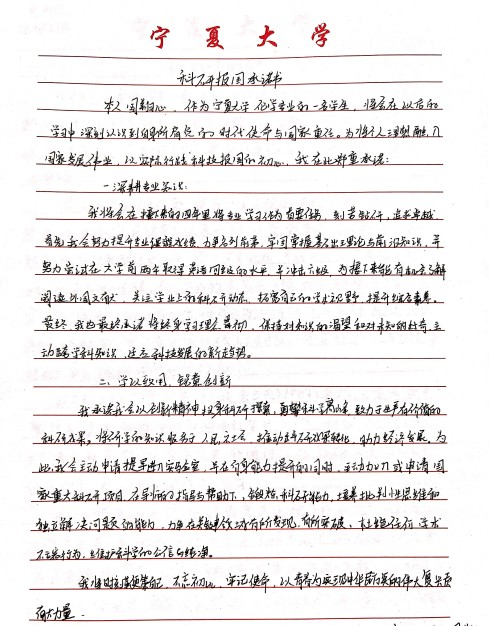 宁夏大学
科研报国承诺书
本人闫 心，作为宁夏大学化学专业的一名学生，将会在以后的
学习中深刻认识到自身所肩负的时代使命与国家重任。为将个人理想融入
国家发展伟业，以实际行动 科技报国的初心，我在此郑重承诺：
一、深耕专业知识：
我将会在接下来的四年里将专业学习作为首要任务，刻苦钻研，追求卓越
首先我会努力提升专业课程成绩，力争名列前茅，牢固掌握基础理论与前沿知识，并
努力尝试在大学前两年取得英语四级的水平，并冲击六级，为接下来能有机会了解
阅读外国文献，关注学业上的科技开动态，拓宽自己的学术视野，提升综合素养。
最终，我也最终承诺将终身学习理念 ，保持对知识的渴望和对未知的好奇，主
动 学科知识，适应科技发展的新趋势。
二、学以致用，锐意创新
我承诺我会以创新精神投身科研探索，勇攀科学高峰，致力于产出有价值的
科研成果。将所学的知识服务于人民，社会，推动科研成果转化，助力经济发展。为
此，我会主动申请提早进入实验室，并在自身能力提升的同时，主动加入或申请国
家重大科研项目，在导师的指导与帮助下，锻炼科研能力，培养批判性思维和
独立解决问题的能力，力争在关键领域有所发现，有所突破。杜绝任何学术
不端行为，维护科学的公信与纯净。
我将时刻 笔记，不忘初心，牢记使命，以青春为实现中华民族的伟大复兴贡
献力量。